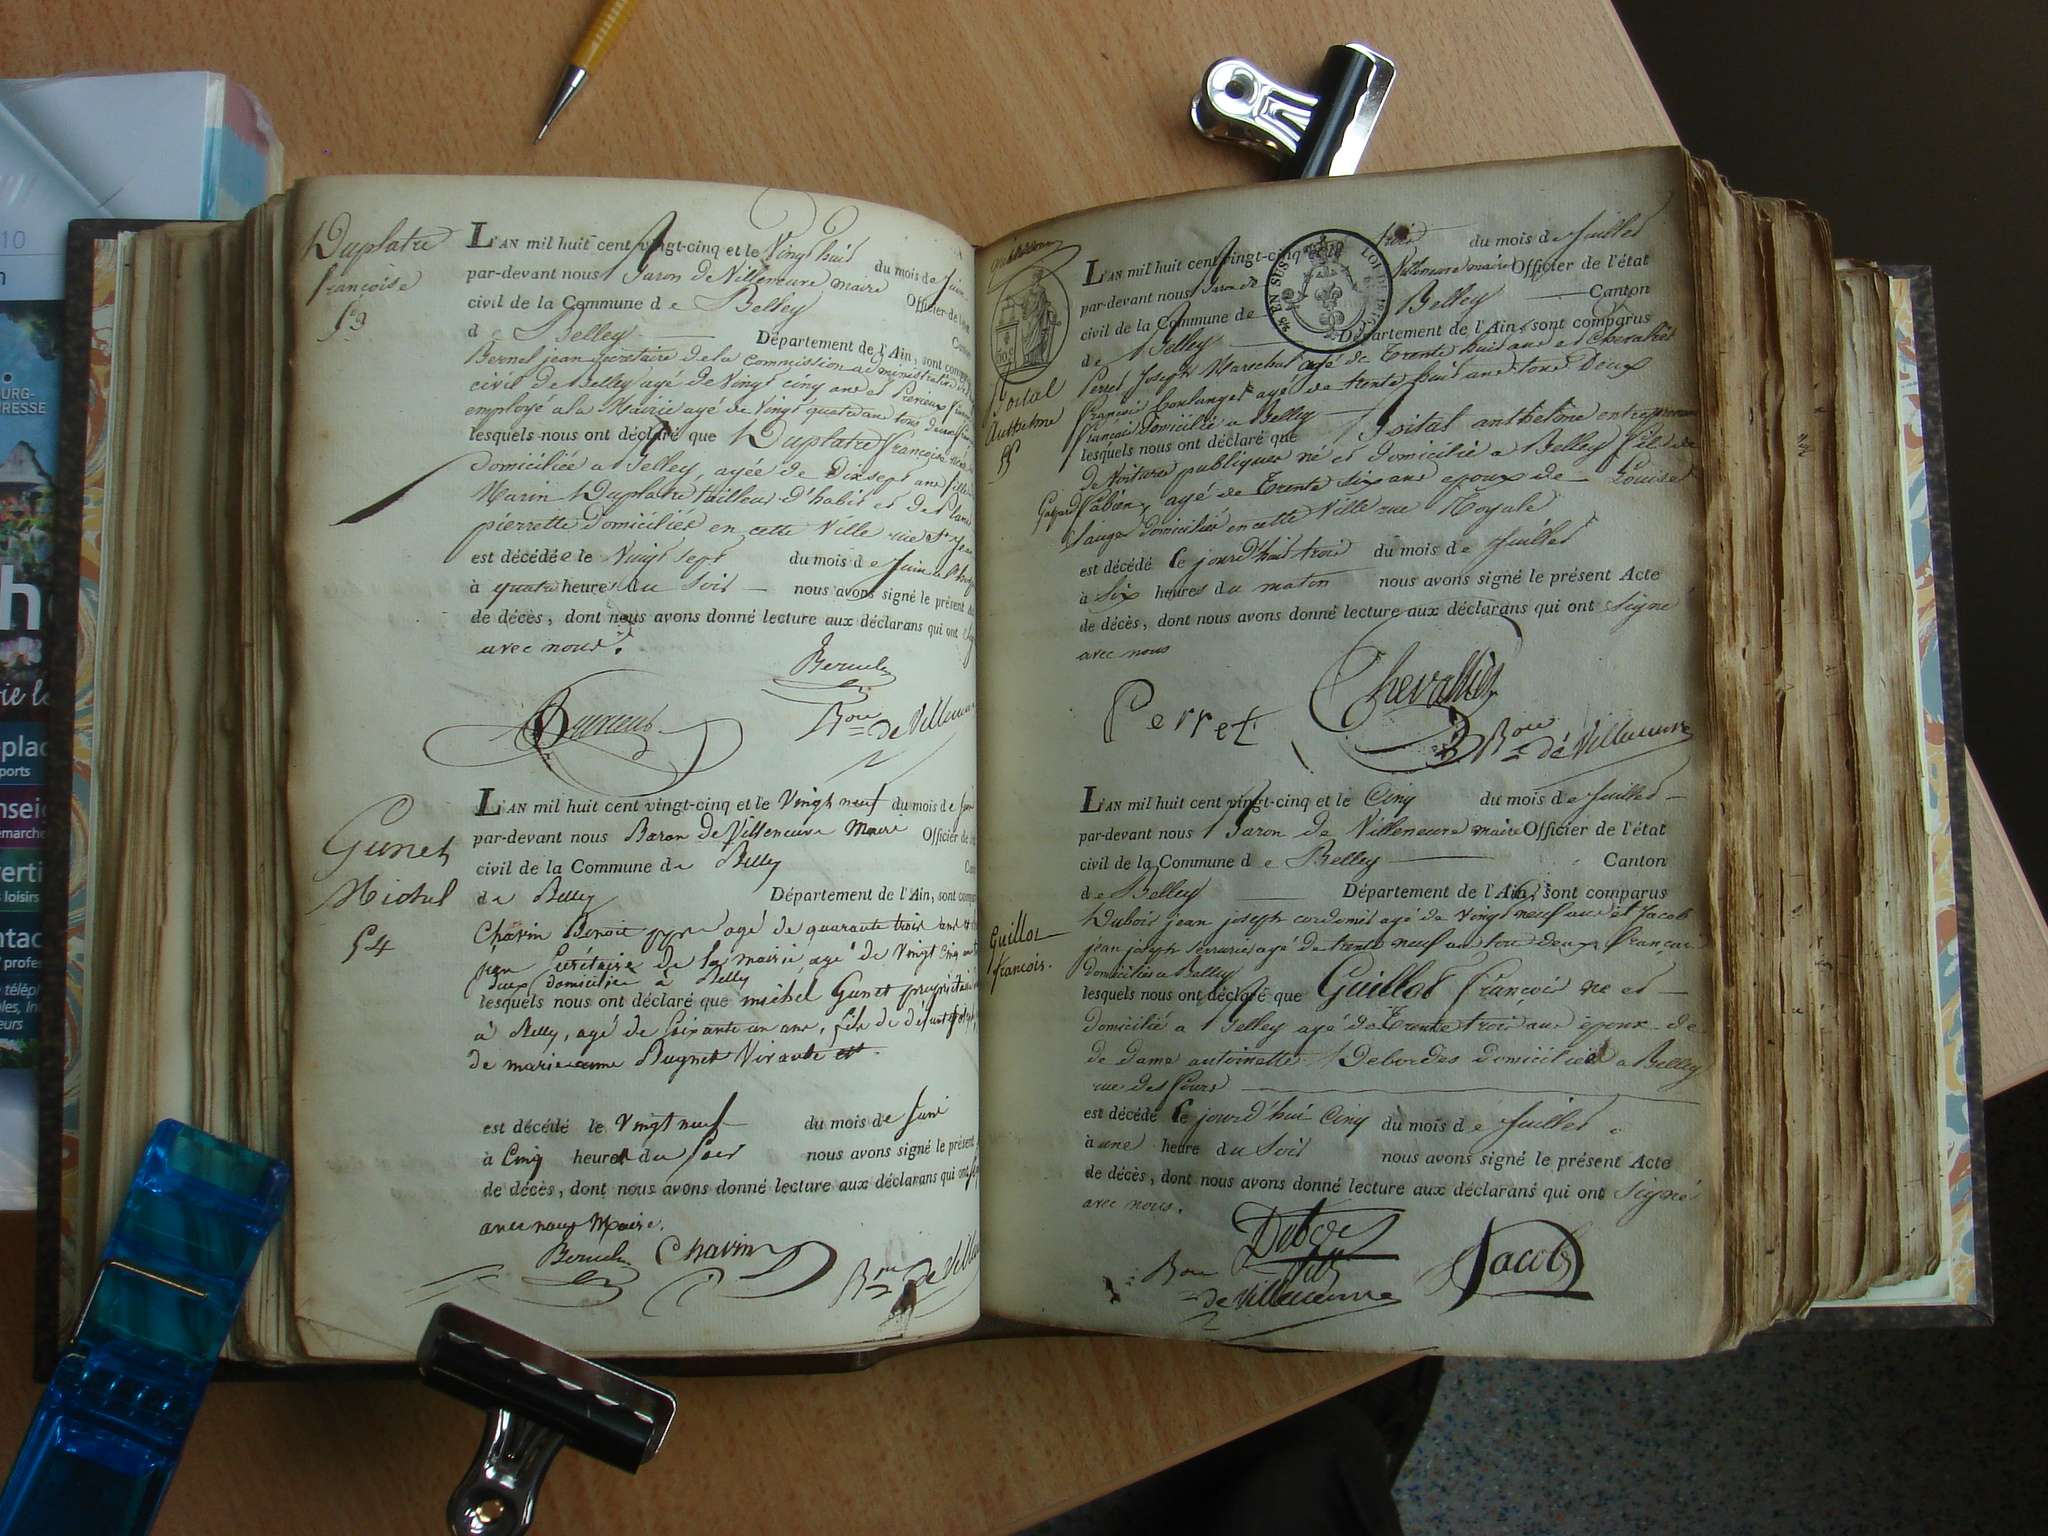 Duplatre
françoise
53
L'AN mil huit cent vingt-cinq et le Vingt huit du mois de Juin
par-devant nous Baron de Villeneuve maire Officier de l'état
civil de la Commune de Belley
de Belley Département de l'Ain, sont comp
Bernel jean Secrétaire de la commission administrative
civil de Belley agé de Vingt cinq ans et
employé a la Mairie agé de Vingt quatre ans tous deux
lesquels nous ont déclaré que Duplatre françoise
domiciliée a Belley, agée de Dix sept ans fille
Marin Duplatre tailleur d'habit et de
pierrette domiciliés en cette Ville rue St
est décédée le Vingt sept du mois de Juin
à quatre heures du Soir nous avons signé le présent
de décès, dont nous avons donné lecture aux déclarans qui ont
avec nous.
Bon de Villeneuve
Gunet
Michel
54
L'AN mil huit cent vingt-cinq et le Vingt neuf du mois de Juin
par-devant nous Baron de Villeneuve Maire Officier de
civil de la Commune de Belley
de Belley Département de l'Ain, sont comp
Chavin Benoit agé de quarante trois ans
Secrétaire de la mairie agé de Vingt Cinq
deux domicilié à Belley
lesquels nous ont déclaré que michel Gunet propriétaire
à Belley, agé de Soixante un ans, fils de défunt
de marie anne Dugnet Vivante est
est décédé le Vingt neuf du mois de Juin
à Cinq heures du Soir nous avons signé le présent
de décès, dont nous avons donné lecture aux déclarans qui ont
avec nous Maire.
Chavin
Bon de Vill
Poital
Anthelme
55
L'AN mil huit cent vingt-cinq et le trois du mois de Juillet
par-devant nous Baron de Villeneuve maire Officier de l'état
civil de la Commune de Belley Canton
de Belley Département de l'Ain, sont comparus
Perret Joseph Marechal agé de Trente huit ans et Chevallier
françois Boulanger agé de trente huit ans tous Deux
français domiciliés a Belley
lesquels nous ont déclaré que Poital anthelme entrepreneur
de Voitures publiques né et domicilié a Belley fils de
Gaspard Fabien, agé de Trente Six ans epoux de Louise
Sauge domiciliés en cette Ville rue Royale
est décédé le jourd'hui trois du mois de Juillet
à Six heures du matin nous avons signé le présent Acte
de décès, dont nous avons donné lecture aux déclarans qui ont Signé
avec nous
Perret
Chevallier
Bon de Villeneuve
Guillot
francois.
L'AN mil huit cent vingt-cinq et le Cinq du mois de Juillet
par-devant nous Baron de Villeneuve maire Officier de l'état
civil de la Commune de Belley Canton
de Belley Département de l'Ain, sont comparus
Dubois jean joseph cordonier agé de Vingt neuf ans et Jacob
jean joseph serrurier agé de trente neuf ans tous deux français
domiciliés a Belley
lesquels nous ont déclaré que Guillot françois né et
domicilié a Belley agé de Trente trois ans epoux de
de dame antoinette Debordes domiciliée a Belley
rue des fours
est décédé le jourd'hui Cinq du mois de Juillet
à une heure du Soir nous avons signé le présent Acte
de décès, dont nous avons donné lecture aux déclarans qui ont Signé
avec nous.
Bon
de Villeneuve
Jacob